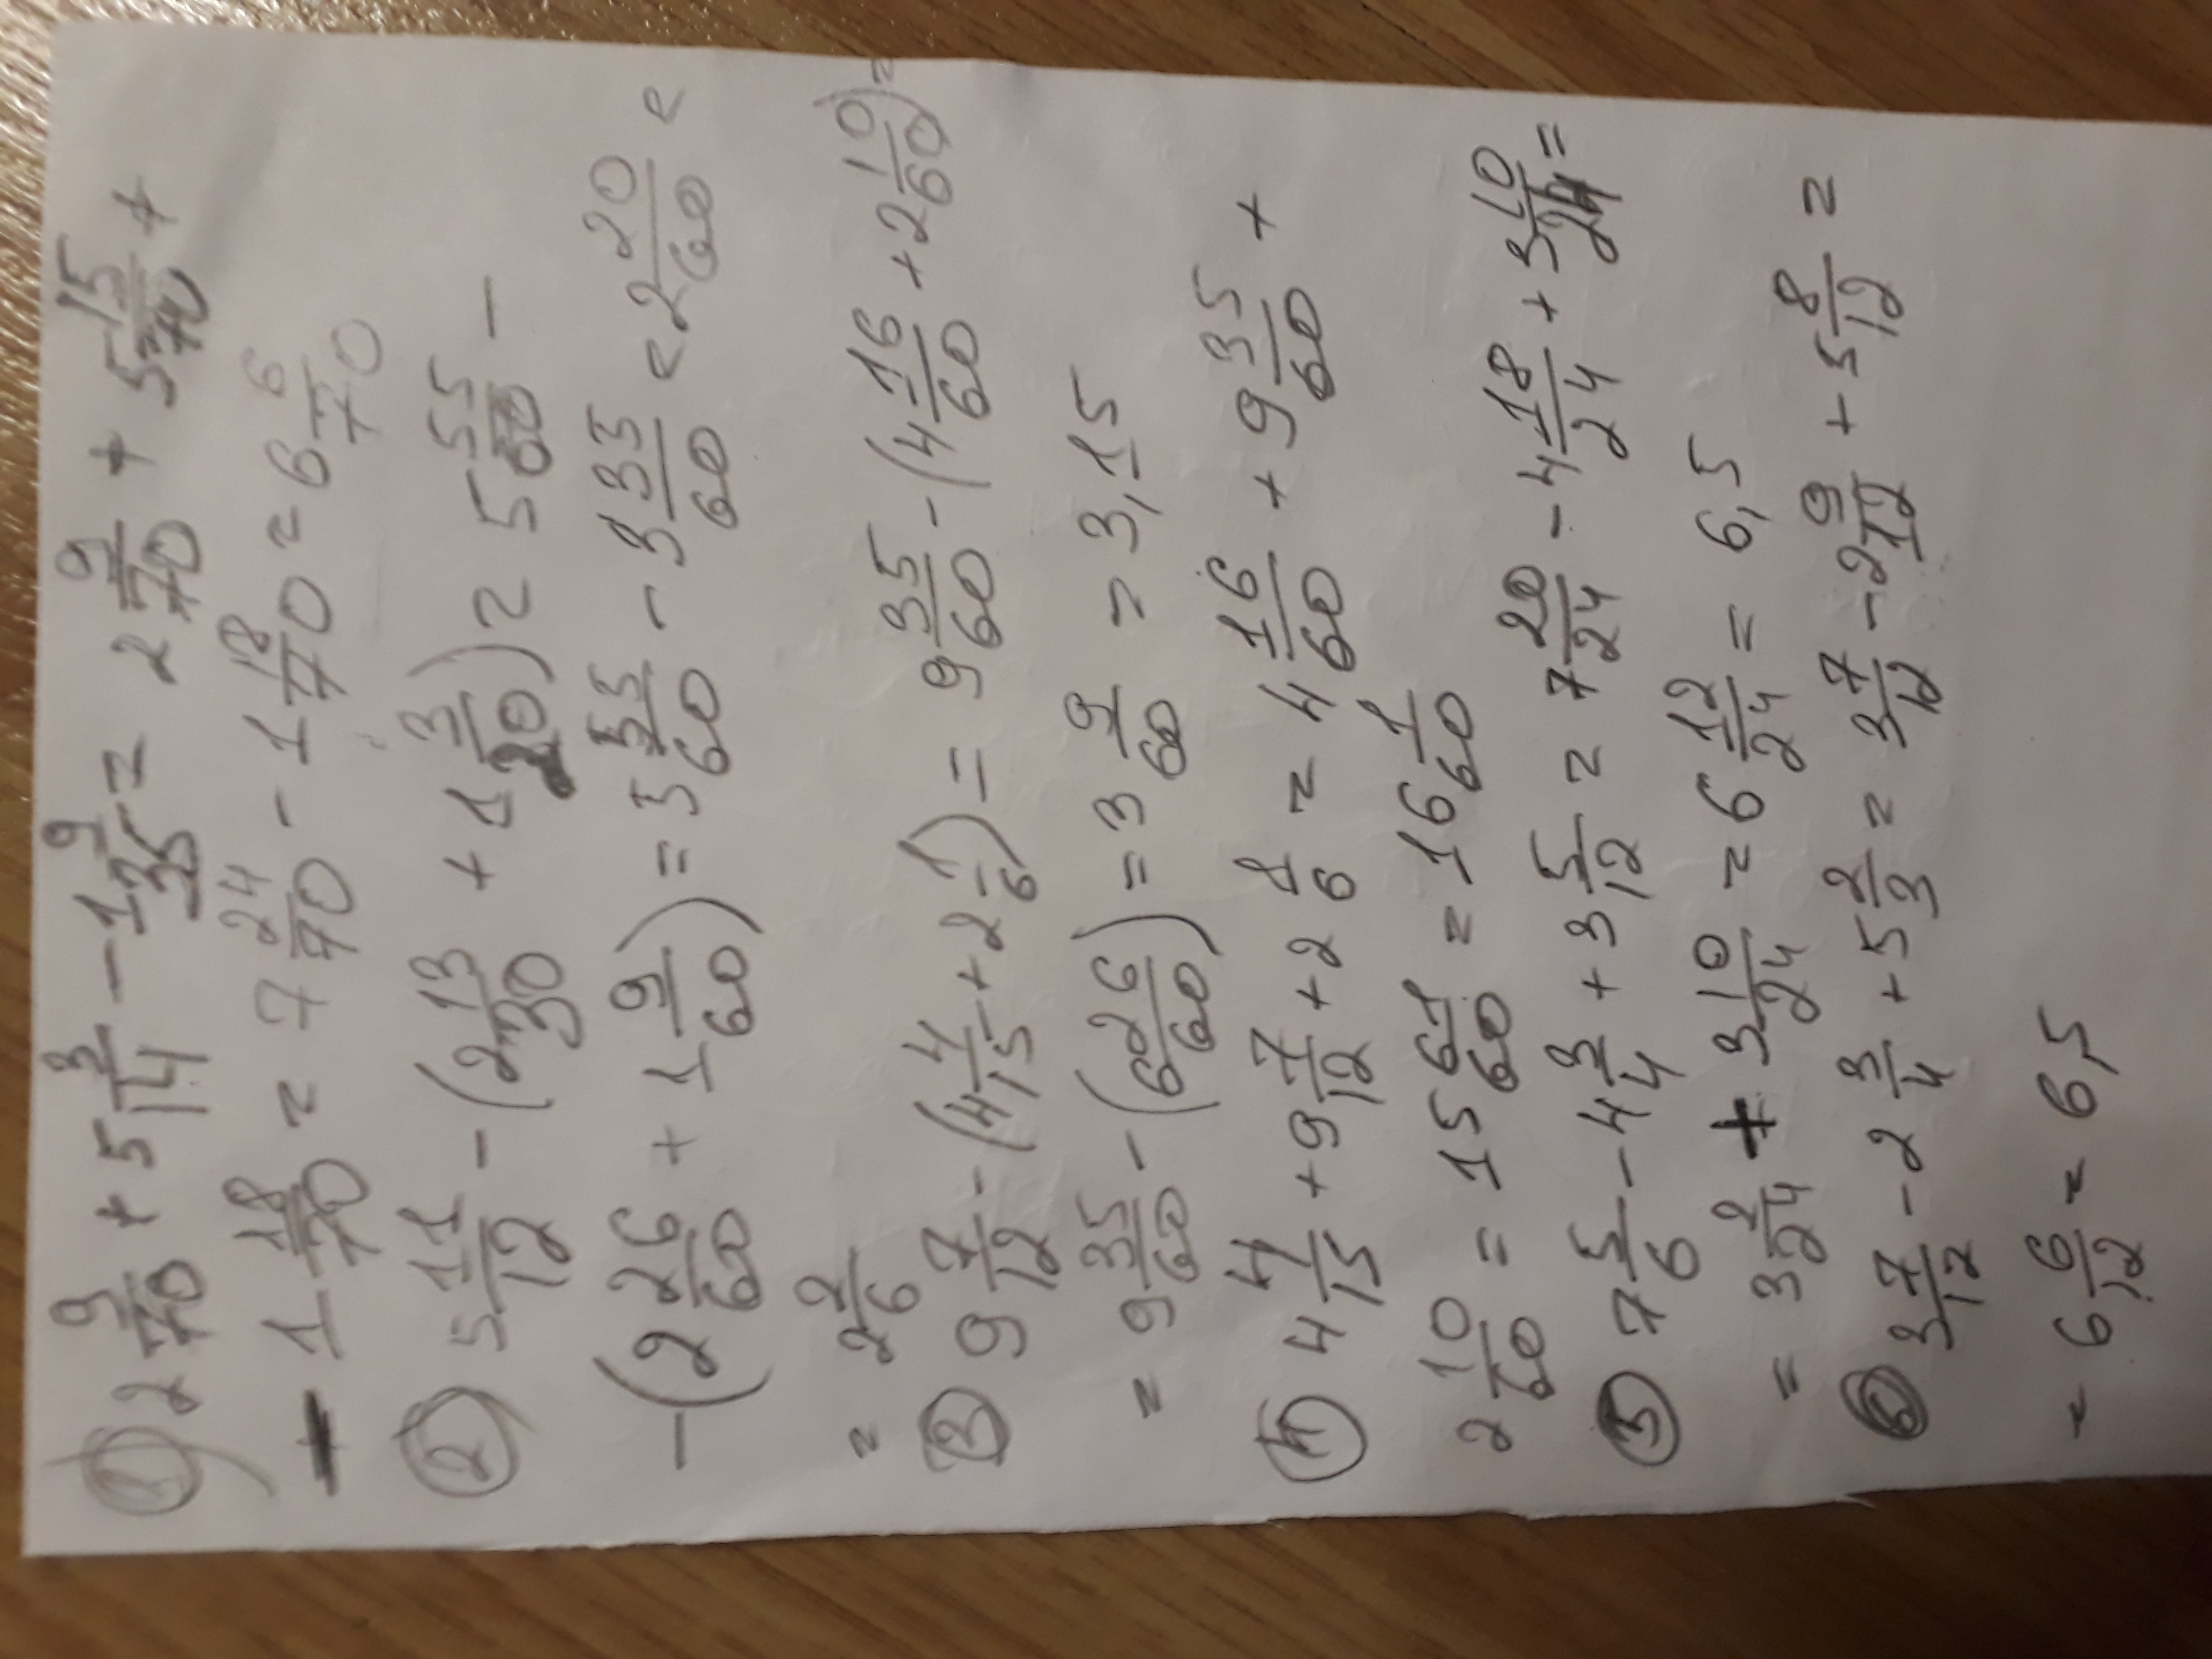 1) 2 9/70 + 5 3/14 - 1 9/35 = 2 9/70 + 5 15/70 +
- 1 18/70 = 7 24/70 - 1 18/70 = 6 6/70
2) 5 11/12 - (2 13/30 + 1 3/20) = 5 55/60 -
- (2 26/60 + 1 9/60) = 5 55/60 - 3 35/60 = 2 20/60 =
= 2 2/6
3) 9 7/12 - (4 4/15 + 2 1/6) = 9 35/60 - (4 16/60 + 2 10/60) =
= 9 35/60 - (6 26/60) = 3 9/60 = 3,15
4) 4 4/15 + 9 7/12 + 2 1/6 = 4 16/60 + 9 35/60 +
2 10/60 = 15 61/60 = 16 1/60
5) 7 5/6 - 4 3/4 + 3 5/12 = 7 20/24 - 4 18/24 + 3 10/24 =
= 3 2/24 + 3 10/24 = 6 12/24 = 6,5
6) 3 7/12 - 2 3/4 + 5 2/3 = 3 7/12 - 2 9/12 + 5 8/12 =
= 6 6/12 = 6,5